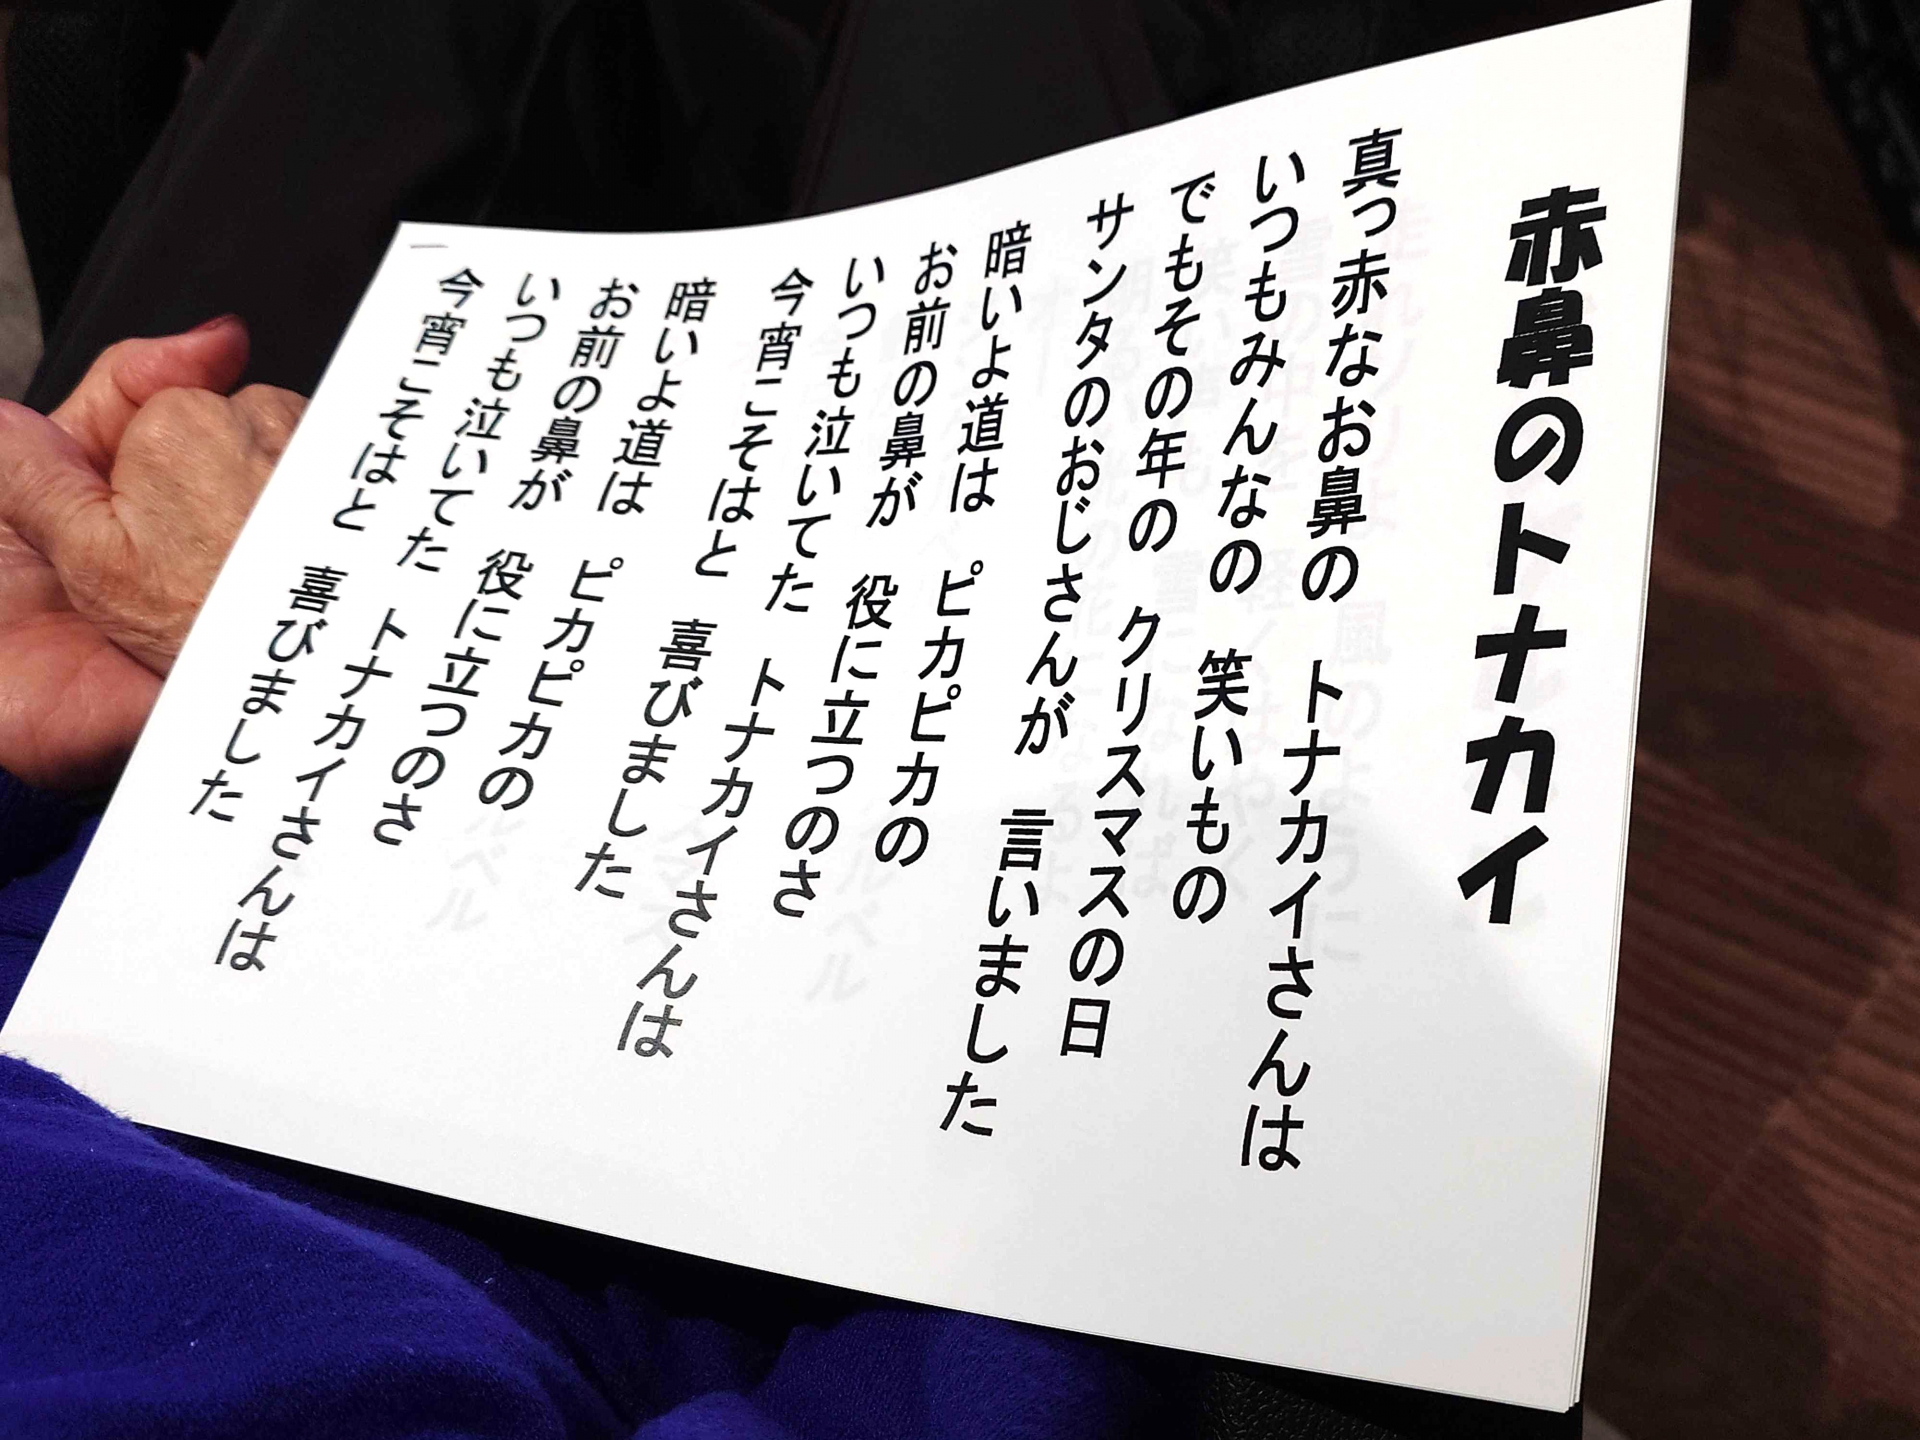 赤鼻のトナカイ
真っ赤なお鼻の　トナカイさんは
いつもみんなの　笑いもの
でもその年の　クリスマスの日
サンタのおじさんが　言いました
暗いよ道は　ピカピカの
お前の鼻が　役に立つのさ
いつも泣いてた　トナカイさんは
今宵こそはと　喜びました
暗いよ道は　ピカピカの
お前の鼻が　役に立つのさ
いつも泣いてた　トナカイさんは
今宵こそはと　喜びました